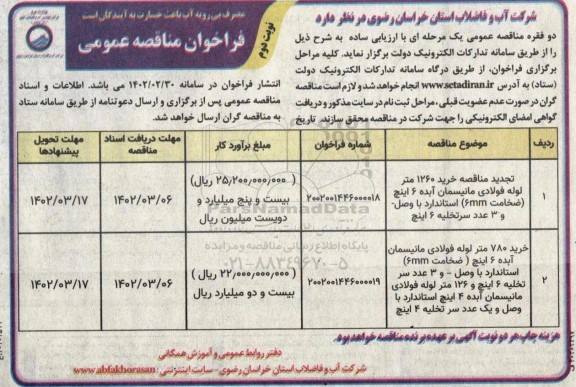 مصرف بی رویه آب باعث خسارت به آیندگان است
فراخوان مناقصه عمومی
نوبت دوم
شرکت آب و فاضلاب استان خراسان رضوی در نظر دارد
دو فقره مناقصه عمومی یک مرحله ای با ارزیابی ساده به شرح ذیل
را از طریق سامانه تدارکات الکترونیک دولت برگزار نماید. کلیه مراحل
برگزاری فراخوان، از طریق درگاه سامانه تدارکات الکترونیک دولت
(ستاد) به آدرس www.setadiran.ir انجام خواهد شد و لازم است مناقصه
گران در صورت عدم عضویت قبلی، مراحل ثبت نام در سایت مذکور و دریافت
گواهی امضای الکترونیکی را جهت شرکت در مناقصه محقق سازند. تاریخ
انتشار فراخوان در سامانه ۱۴۰۲/۰۲/۳۰ می باشد. اطلاعات و اسناد
مناقصه عمومی پس از برگزاری و ارسال دعوتنامه از طریق سامانه ستاد
به مناقصه گران ارسال خواهد شد.
ردیف موضوع مناقصه شماره فراخوان مبلغ برآورد کار مهلت دریافت اسناد مناقصه مهلت تحویل پیشنهادها
۱
تجدید مناقصه خرید ۱۲۶۰ متر
لوله فولادی مانیسمان آبده ۶ اینچ
(ضخامت ۶mm) استاندارد با وصل-
و ۳ عدد سرتخلیه ۶ اینچ
۲۰۰۲۰۰۱۴۴۶۰۰۰۰۱۸
(۲۵,۲۰۰,۰۰۰,۰۰۰ ریال)
بیست و پنج میلیارد و
دویست میلیون ریال
۱۴۰۲/۰۳/۰۶
۱۴۰۲/۰۳/۱۷
۲
خرید ۷۸۰ متر لوله فولادی مانیسمان
آبده ۶ اینچ ( ضخامت ۶mm)
استاندارد با وصل - و ۳ عدد سر
تخلیه ۶ اینچ و ۱۲۶ متر لوله فولادی
مانیسمان آبده ۴ اینچ استاندارد با
وصل و یک عدد سر تخلیه ۴ اینچ
۲۰۰۲۰۰۱۴۴۶۰۰۰۰۱۹
(۲۲,۰۰۰,۰۰۰,۰۰۰ ریال)
بیست و دو میلیارد ریال
۱۴۰۲/۰۳/۰۶
۱۴۰۲/۰۳/۱۷
ParsNamadData
پایگاه اطلاع رسانی مناقصه و مزایده
۰۲۱-۸۸۳۴۹۶۷۰-۵
هزینه چاپ هر دو نوبت آگهی بر عهده برنده مناقصه خواهد بود.
دفتر روابط عمومی و آموزش همگانی
شرکت آب و فاضلاب استان خراسان رضوی - سایت اینترنتی: www.abfakhorasan.ir